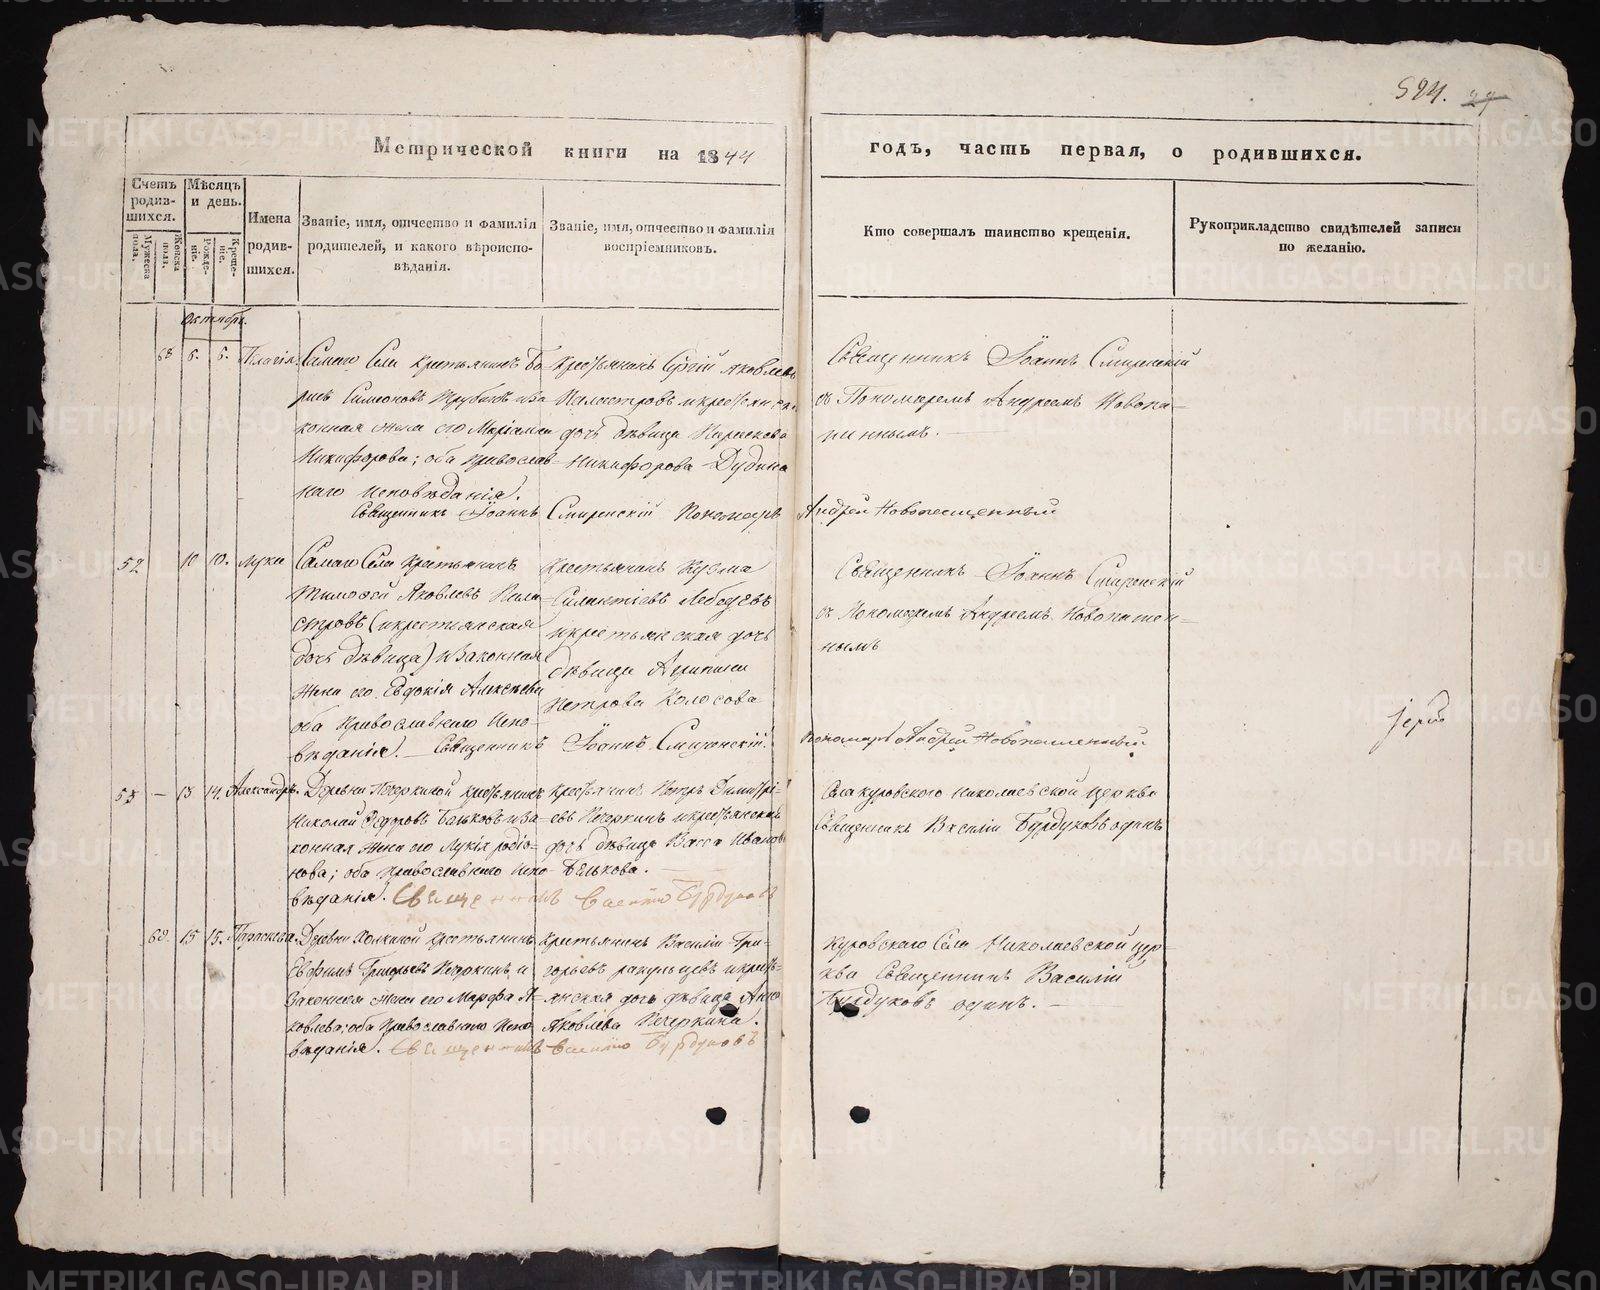 524. 27
Метрической книги на 1844
годъ, часть первая, о родившихся.
Счетъ родив-шихся.
Мужеска пола.
Женска пола.
Мѣсяцъ и день.
Рожде-ніе.
Креще-ніе.
Имена родив-шихся.
Званіе, имя, отчество и фамилія
родителей, и какого вѣроиспо-
вѣданія.
Званіе, имя, отчество и фамилія
воспріемниковъ.
Кто совершалъ таинство крещенія.
Рукоприкладство свидѣтелей записи
по желанію.
Октябрь.
68 5. 5.
Самаго Села Крестьянинъ Бо-
рисъ Симеоновъ иза-
конная жена его Маріамна
Никифорова; оба православ-
наго исповѣданія.
Крестьянинъ Сергій Яковлевъ
дочь дѣвица Параскева
Никифорова Дудина
Священникъ Іоаннъ Смиренскій
съ Пономаремъ Андреемъ Новопа-
шеннымъ.
Священникъ Іоаннъ Смиренскій Пономарь Андрей Новопашенный
52 10 10. Лука
Самаго Села Крестьянинъ
Тимофей Яковлевъ Пала-
стровъ (икрестьянская
дочь дѣвица) иЗаконная
Жена его Евдокія Алексѣева
оба Православнаго Испо-
вѣданія.
Крестьянинъ Кузма
Силантіевъ Лебедевъ
икрестьянская дочь
дѣвица Агрипина
Петрова Колосова
Священникъ Іоаннъ Смиренскій
съ Пономаремъ Андреемъ Новопашен-
нымъ
Священникъ Іоаннъ Смиренскій. Пономарь Андрей Новопашенный.
53 — 13 14. Александръ.
Деревни Печеркиной Крестьянинъ
Николай Ѳедоровъ Бѣльковъ иза-
конная Жена его Лукія родіо-
нова; оба православнаго Испо-
вѣданія. Священникъ Василій Бурдуковъ
Крестьянинъ Петръ Димитрі-
евъ Печеркинъ икрестьянская
дочь дѣвица Васса Иванова
Бѣлькова.
Села куровского Николаевской церкви
Священникъ Василій Бурдуковъ одинъ
69. 15 15. Параскева
Деревни Холкиной крестьянинъ
Евфимъ Григорьевъ Печеркинъ и
Законная жена его Марфа Я-
ковлева; оба Православнаго Испо-
вѣданія. Священникъ Василій Бурдуковъ
Крестьянинъ Василій Гри-
горьевъ икресть-
янская дочь дѣвица Анна
Яковлева Печеркина.
Куровскаго Села Николаевской цер-
кви Священникъ Василій
Бурдуковъ одинъ.
METRIKI.GASO-URAL.RU